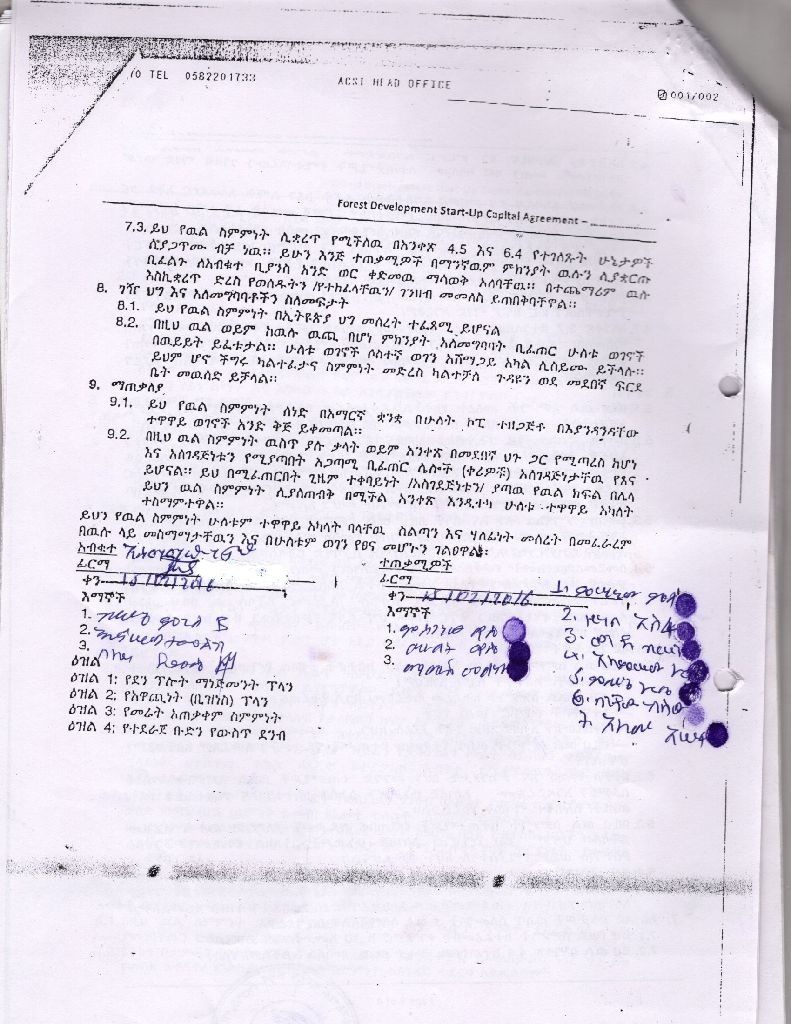 TO TEL 0582201733 ACSI HEAD OFFICE 001/002
Forest Development Start-Up Capital Agreement –
7.3. ይህ የዉል ስምምነት ሊቋረጥ የሚችለዉ በአንቀጽ 4.5 እና 6.4 የተገለጹት ሁኔታዎች
ሲያጋጥሙ ብቻ ነዉ። ይሁን እንጅ ተጠቃሚዎች በማንኛዉም ምክንያት ዉሉን ሊያቋርጡ
ቢፈልጉ ለአብቁተ ቢያንስ አንድ ወር ቀድመዉ ማሳወቅ አለባቸዉ። በተጨማሪም ዉሉ
እስኪቋረጥ ድረስ የወሰዱትን /የተከፈላቸዉን/ ገንዘብ መመለስ ይጠበቅባቸዋል።
8. ገዥ ህግ እና አለመግባባቶችን ስለመፍታት
8.1. ይህ የዉል ስምምነት በኢትዮጵያ ህግ መሰረት ተፈጻሚ ይሆናል
8.2. በዚህ ዉል ወይም ከዉሉ ዉጪ በሆነ ምክንያት አለመግባባት ቢፈጠር ሁለቱ ወገኖች
በዉይይት ይፈቱታል። ሁለቱ ወገኖች ሶስተኛ ወገን አሸማጋይ አካል ሊሰይሙ ይችላሉ።
ይህም ሆኖ ችግሩ ካልተፈታና ስምምነት መድረስ ካልተቻለ ጉዳዩን ወደ መደበኛ ፍርድ
ቤት መዉሰድ ይቻላል።
9. ማጠቃለያ
9.1. ይህ የዉል ስምምነት ሰነድ በአማርኛ ቋንቋ በሁለት ኮፒ ተዘጋጅቶ በእያንዳንዳቸው
ተዋዋይ ወገኖች እንድ ቅጅ ይቀመጣል።
9.2. በዚህ ዉል ስምምነት ዉስጥ ያሉ ቃላት ወይም አንቀጽ በመደበኛ ህጉ ጋር የሚጣረስ ከሆነ
እና አስገዳጅነቱን የሚያጣበት አጋጣሚ ቢፈጠር ሌሎች (ቀሪዎቹ) አስገዳጅነታቸዉ የጸና
ይሆናል። ይህ በሚፈጠርበት ጊዜም ተቀባይነት /አስገደጅነቱን/ ያጣዉ የዉል ክፍል በሌላ
ይህን ዉል ስምምነት ሊያስጠብቅ በሚችል አንቀጽ እንዲተካ ሁለቱ ተዋዋይ አካላት
ተስማምተዋል።
ይህን የዉል ስምምነት ሁለቱም ተዋዋይ አካላት ባላቸዉ ስልጣን እና ሃላፊነት መሰረት በመፈራረም
በዉሉ ላይ መስማማታቸዉን እና በሁለቱም ወገን የፀና መሆኑን ገልፀዋል፡
አብቁተ
ፊርማ
ቀን 15/02/2016
እማኞች
1. B
2.
3.
ዕዝል
ዕዝል 1: የደን ፕሎት ማኔጅመንት ፕላን
ዕዝል 2: የአዋጪነት (ቢዝነስ) ፕላን
ዕዝል 3: የመሬት አጠቃቀም ስምምነት
ዕዝል 4: የተደራጀ ቡድን የውስጥ ደንብ
ተጠቃሚዎች
ፊርማ
ቀን 15/02/2016
እማኞች
1.
2.
3.
1.
2.
3.
4.
5.
6.
7.